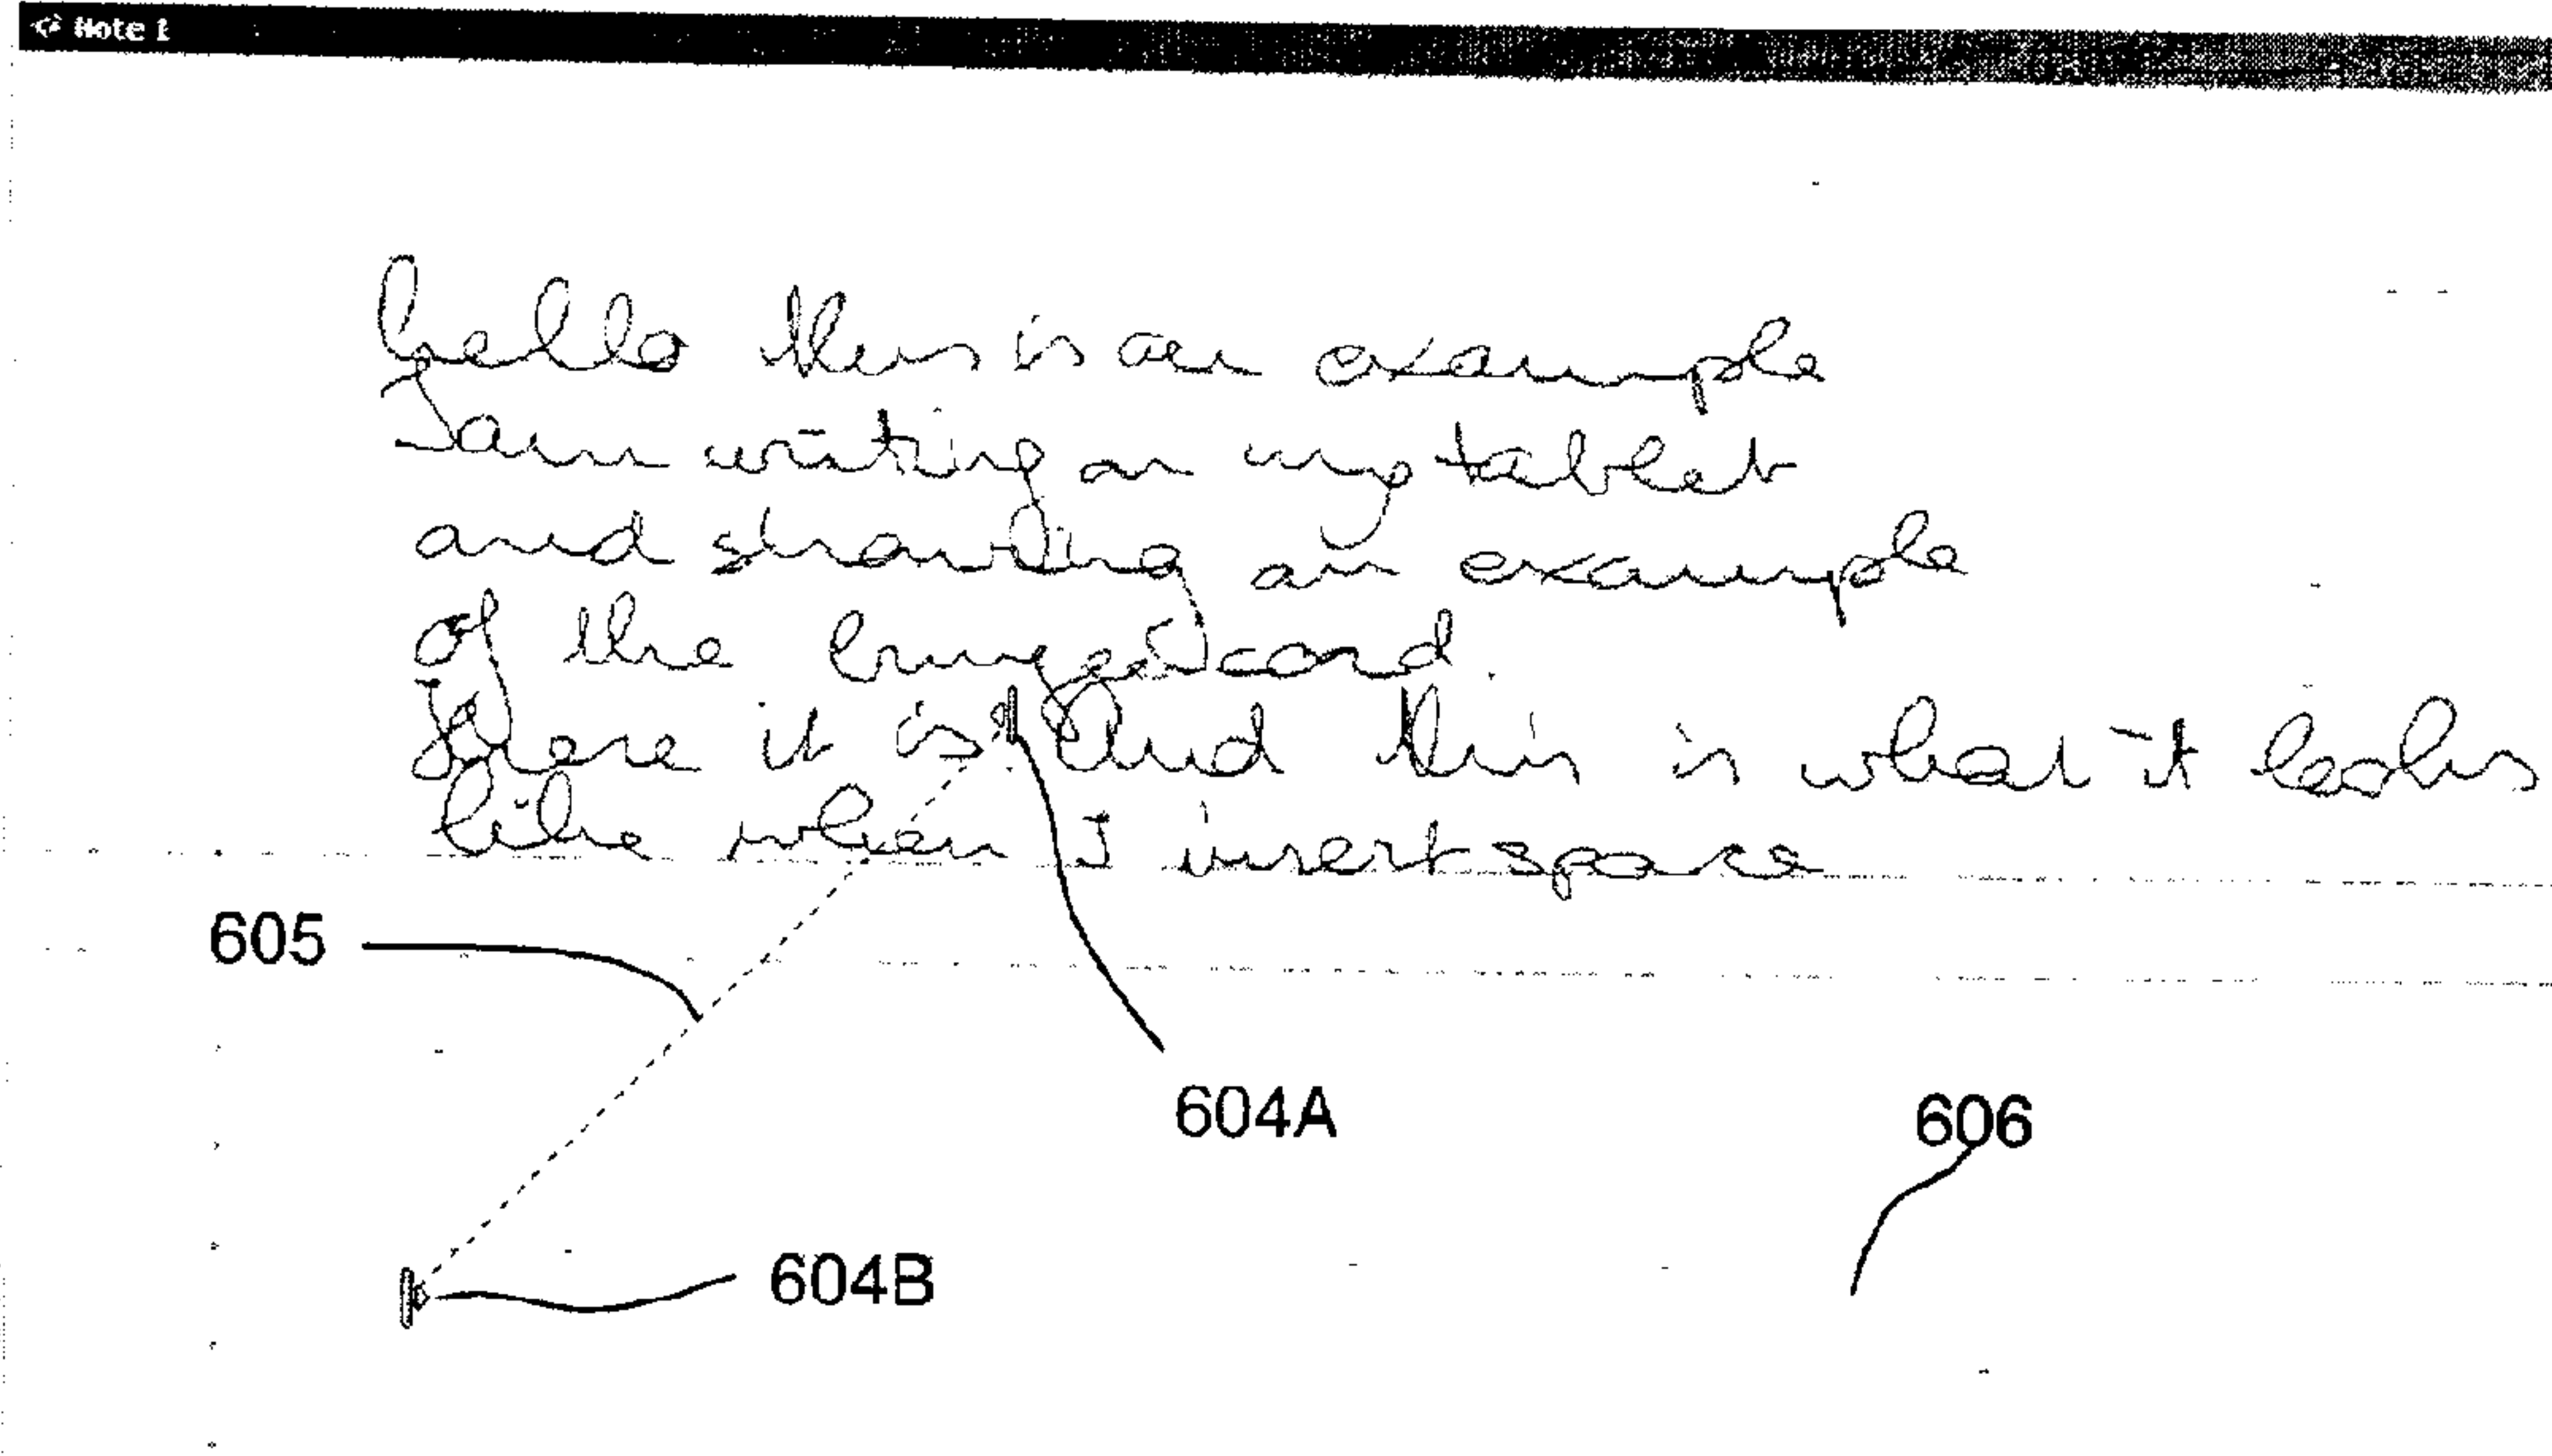 Note 1
hello this is an example
I am writing on my tablet
and showing an example
of the bungee cord.
There it is And this is what it looks
like when I insert space
605
604A
606
604B